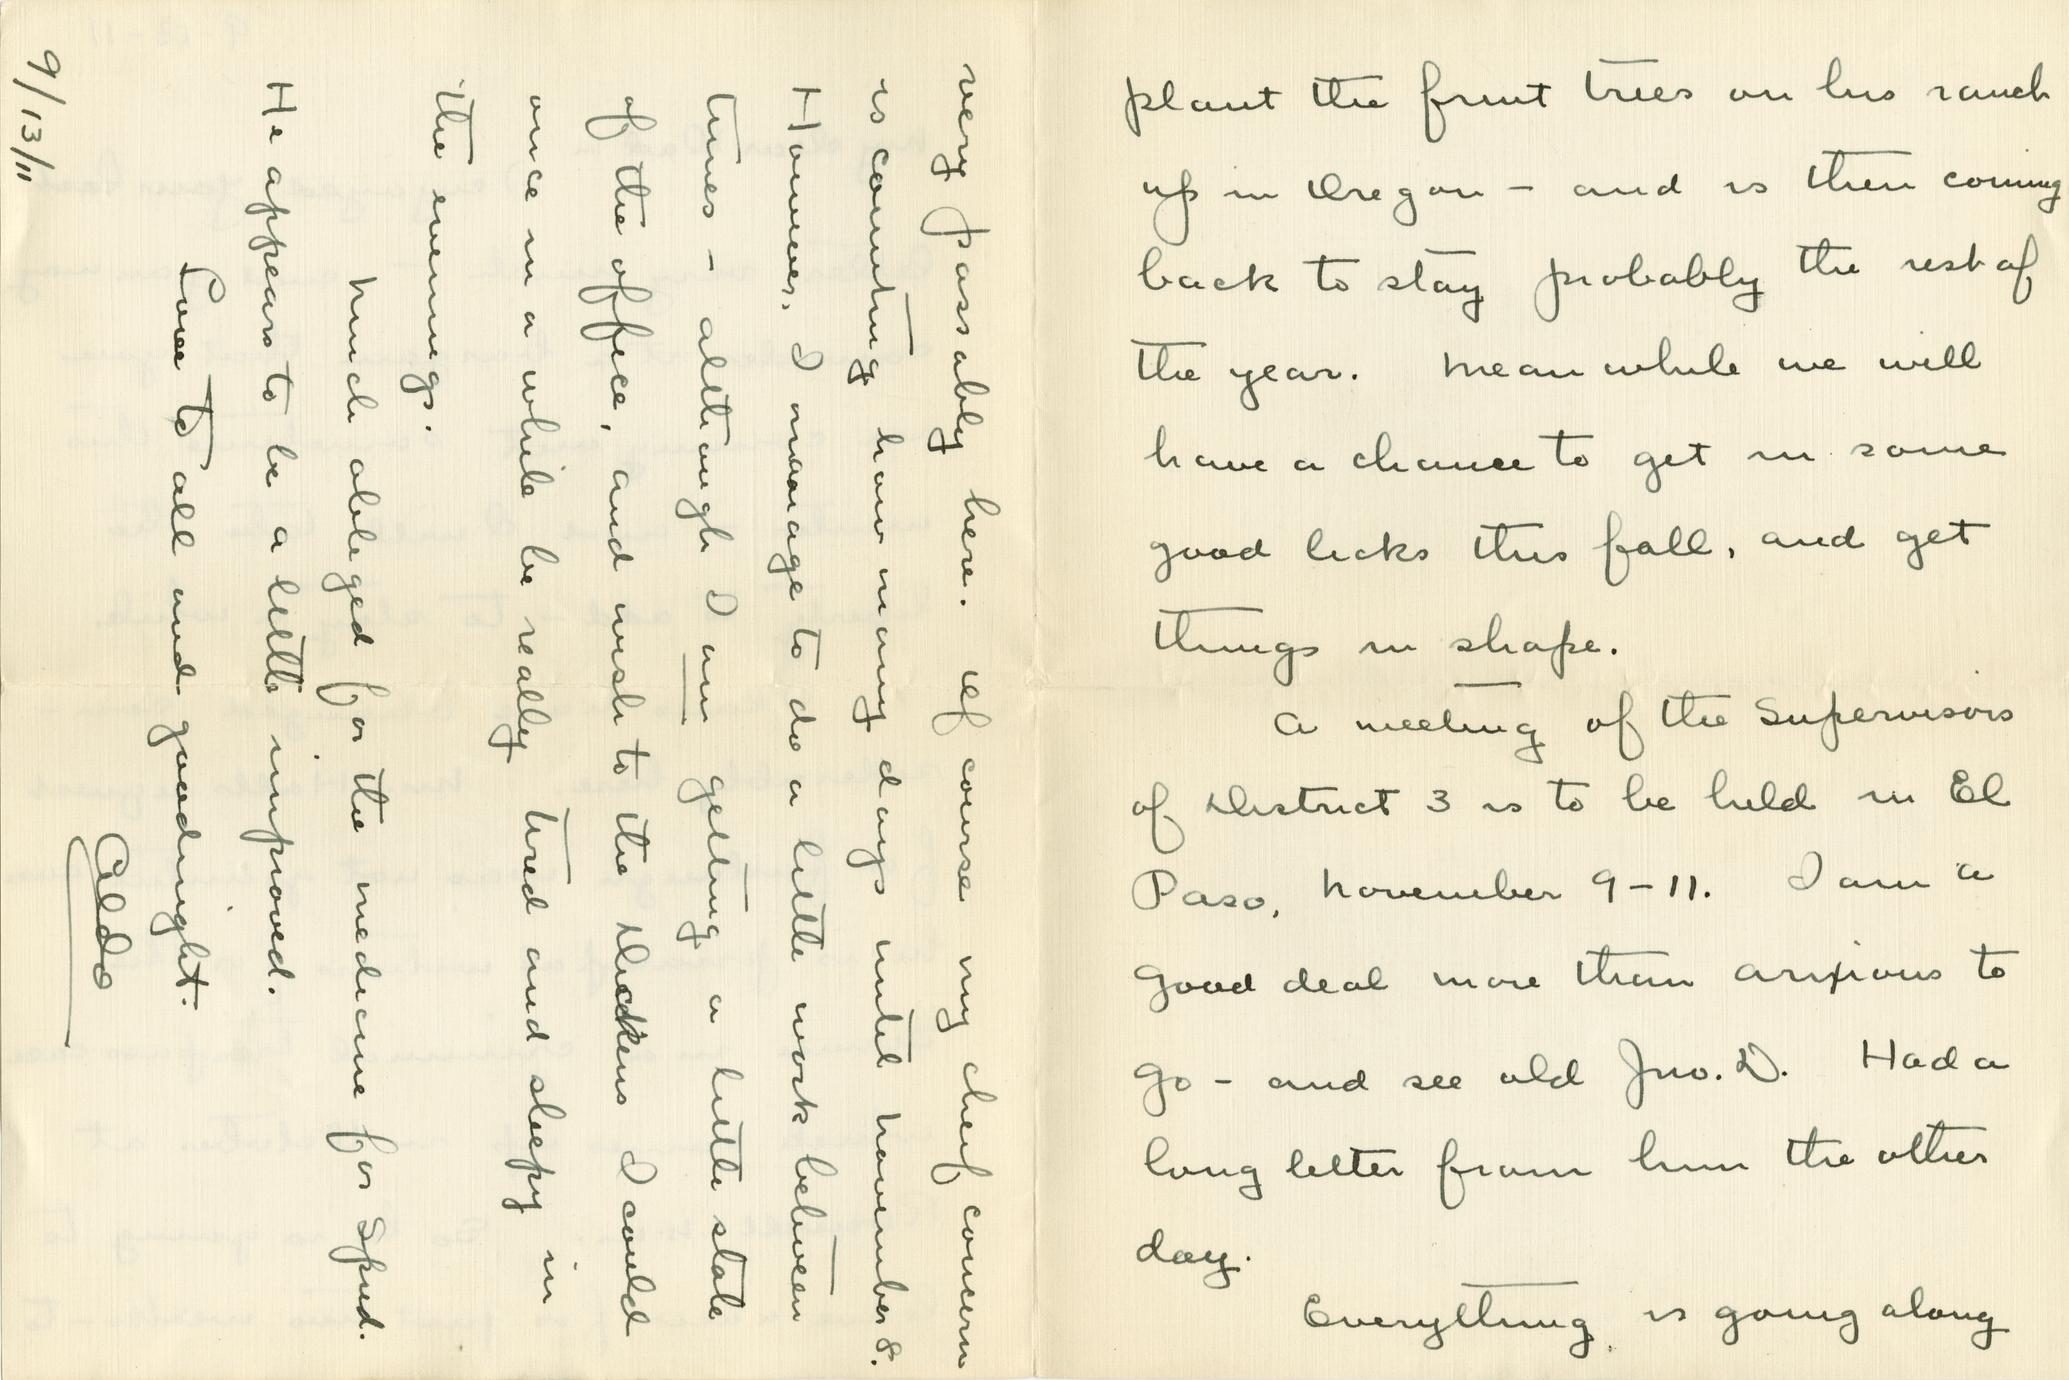 plant the fruit trees on his ranch
up in Oregon - and is then coming
back to stay probably the rest of
the year. Meanwhile we will
have a chance to get in some
good licks this fall, and get
things in shape.
A meeting of the Supervisors
of District 3 is to be held in El
Paso, November 9-11. I am a
good deal more than anxious to
go - and see old Jno. D. Had a
long letter from him the other
day.
Everything is going along
very passably here. Of course my chief concern
is counting how many days until November 8.
However, I manage to do a little work between
times - although I am getting a little stale
of the office, and wish to the Dickens I could
once in a while be really tired and sleepy in
the evenings.
Much obliged for the medicine for Spud.
He appears to be a little improved.
Love to all and goodnight.
Aldo
9/13/11